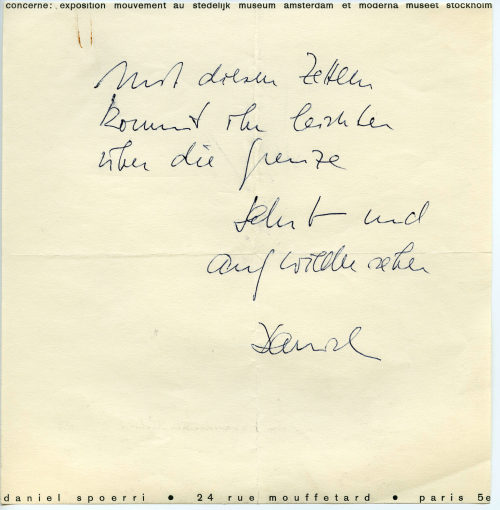 concerne: exposition mouvement au stedelijk museum amsterdam et moderna museet stockholm
Mit diesen Zetteln
kommt ihr leichter
über die Grenze
und
auf wiedersehen
Daniel
daniel spoerri • 24 rue mouffetard • paris 5e